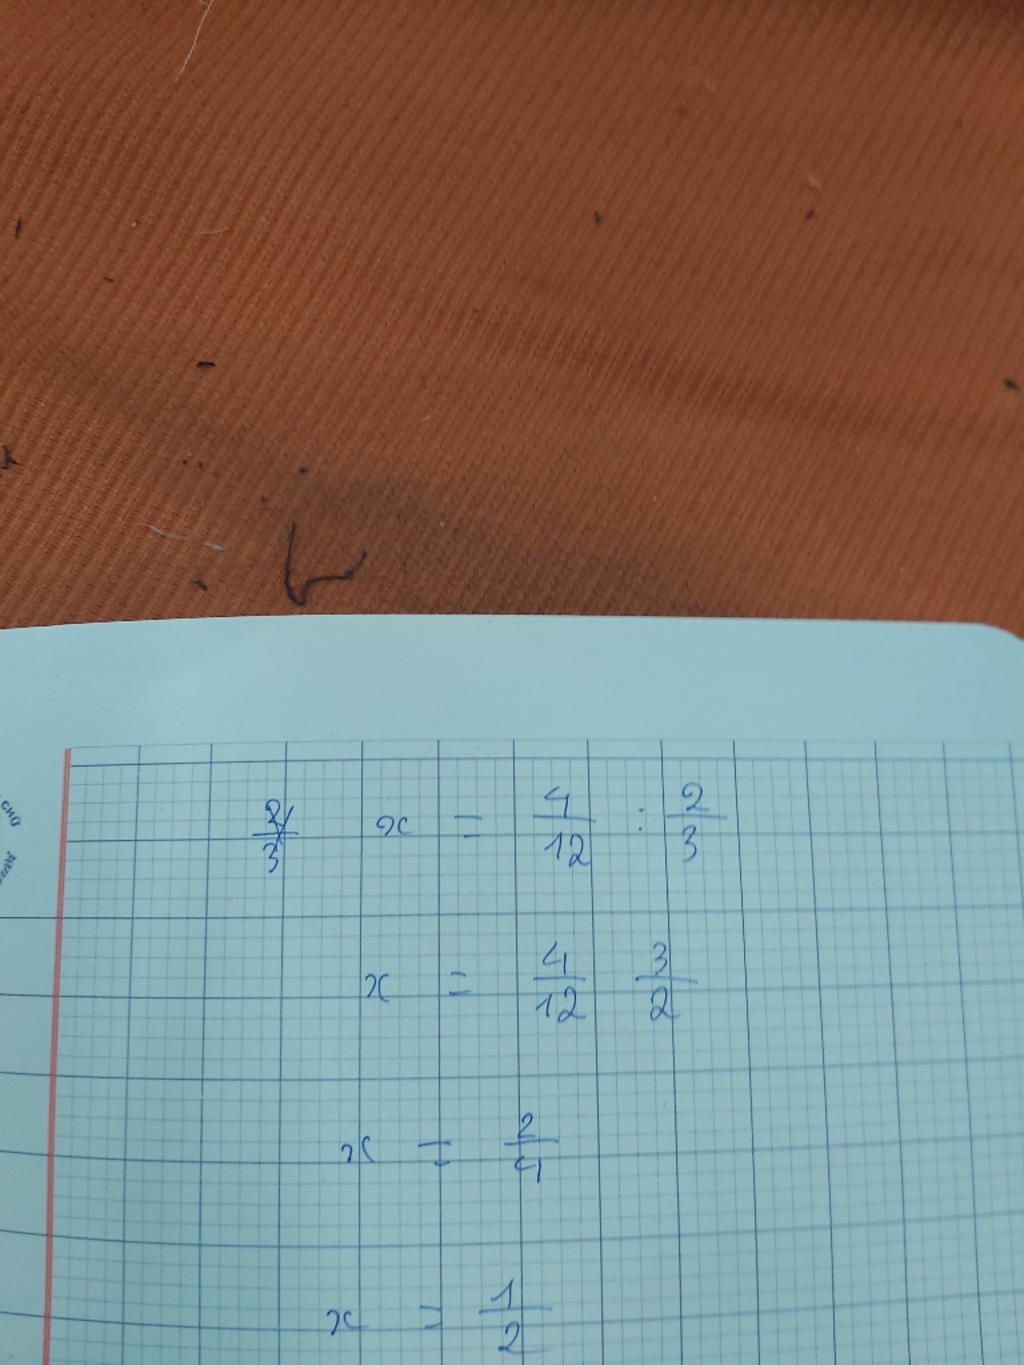 2/3 x = 4/12 : 2/3
x = 4/12 3/2
x = 2/4
x = 1/2